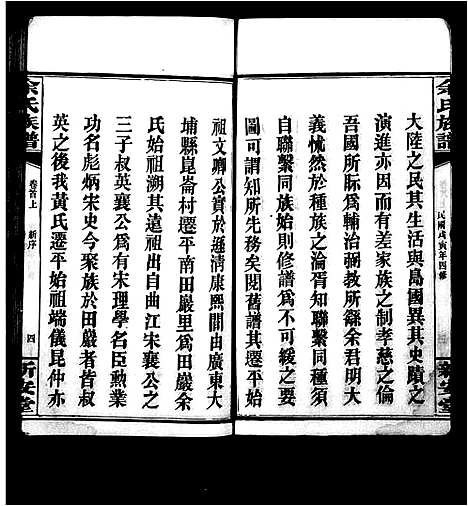 余氏族譜
民國戊寅年四修
新安堂
大陸之民其生活與島國異其史蹟之
演進亦因而有差家族之制孝慈之倫
吾國所眎爲輔治弼教所繇余君明大
義怵然於種族之淪胥知聯繫同種須
自聯繫同族始修譜爲不可緩之要
圖可謂知所先務矣閱舊譜其遷平始
祖文卿公實於遜清康熙間由廣東大
埔縣崑崙村遷平南田嚴里爲田嚴余
氏始祖溯其遠祖出自曲江宋襄公之
三子叔英襄公爲有宋理學名臣勲業
功名彪炳宋史今聚族於田嚴者皆叔
英之後我黃氏遷平始祖端儀昆仲亦
余氏族譜
卷首上
新序
四
新安堂